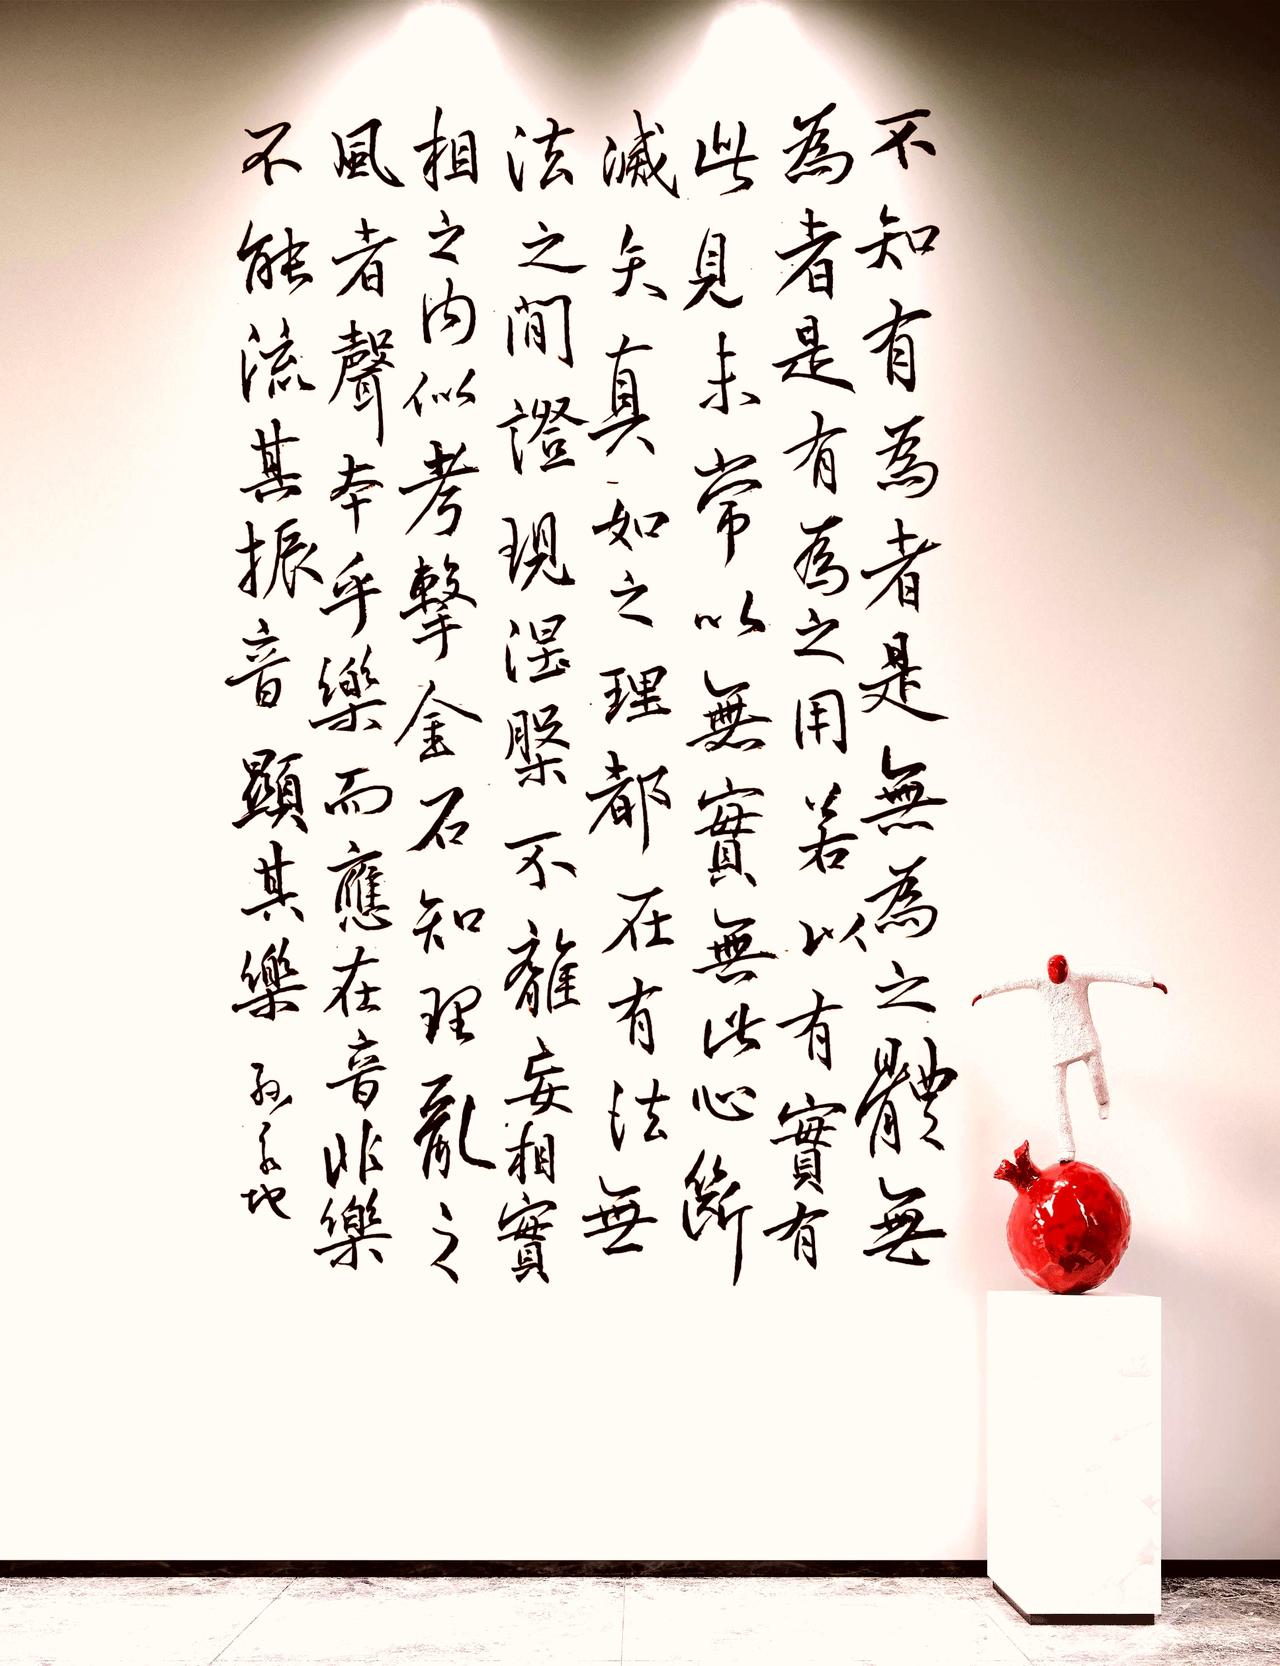 不知有為者是無為之體無
為者是有為之用若以有實有
此見未常以無實無此心斷
滅矣真如之理都在有法無
法之間證現涅槃不離妄相實
相之内似考擊金石知理亂之
風者聲本乎樂而應在音非樂
不能流其振音顯其樂